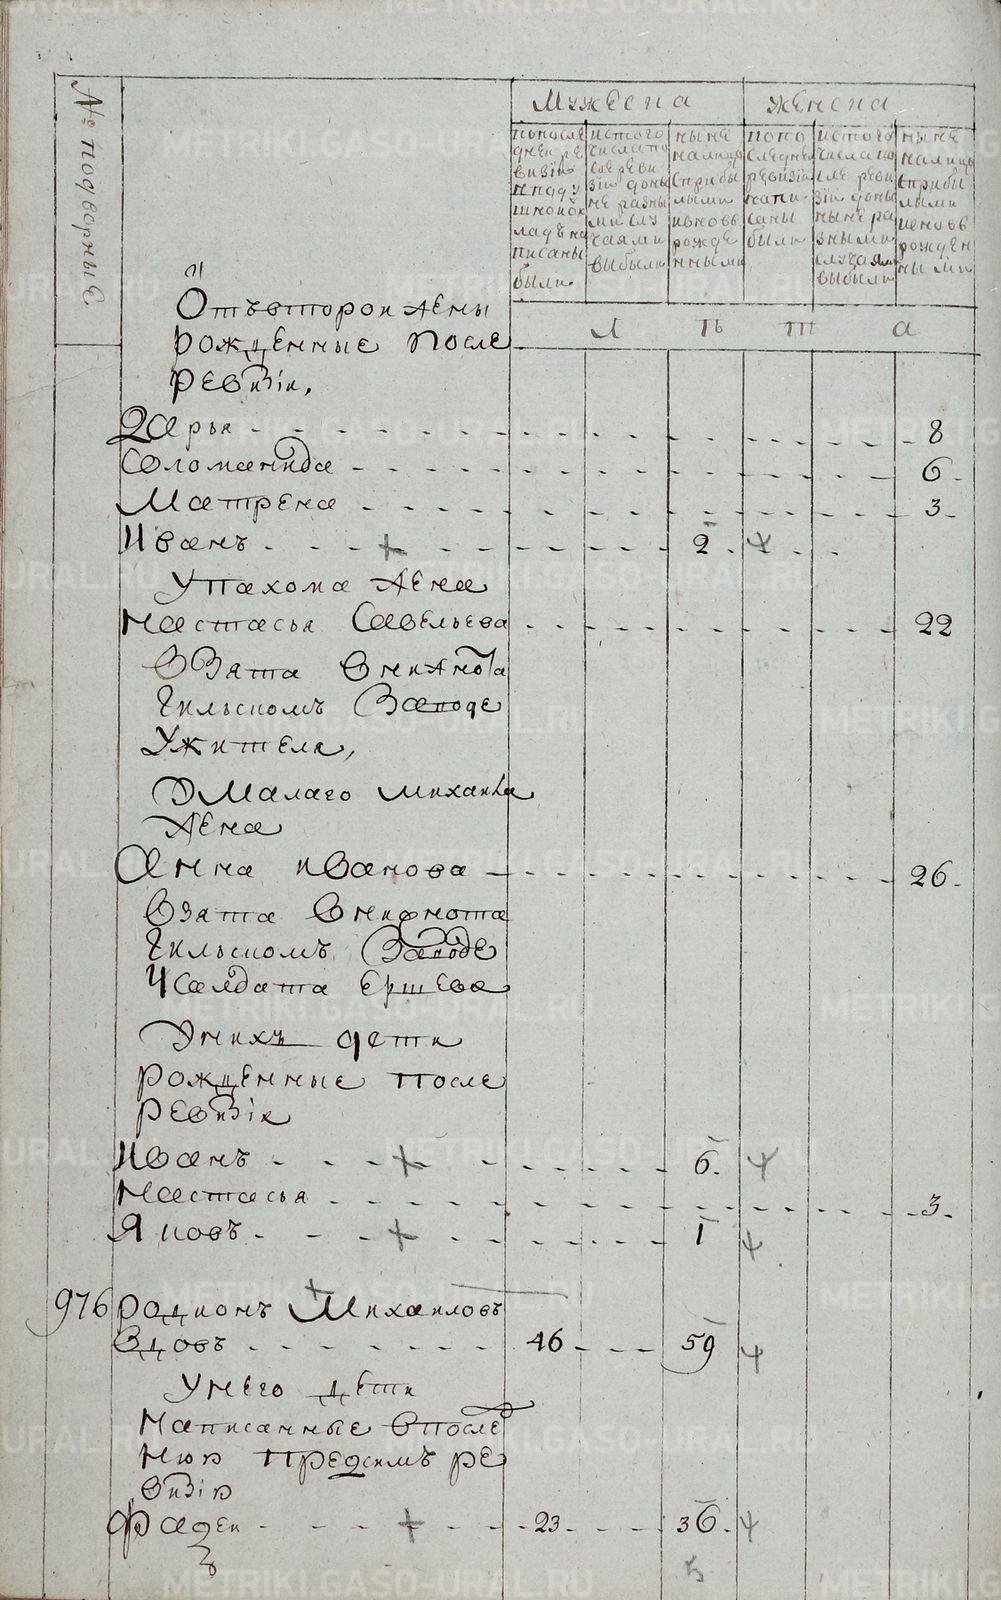 № подворные
Мужеска
Женска
попосле
дней ре
визiи
и поду
шной ок
ладъ на
писаны
были
истого
числа по
сле реви
зiи доны
не разны
ми слу
чаями
выбыли
ныне
налицо
сприбы
лыми
ивновь
рожде
нными
попо
следней
ревизiи
напи
саны
были
истого
числа по
сле реви
зiи доны
ныне ра
зными
случаями
выбыли
ныне
налицо
сприбы
лыми
ивновь
рожден
ными
Л ѣ т а
Отъвторои жены
рожденные после
ревизiи,
Дарья 8
Соломанида 6
Матрена 3
Иванъ 2
Упахома жена
Настасья Савельева 22
Взята Внижнота
гильскомъ Заводе
Ужителя,
Омалаго михаила
жена
Анна иванова 26
Взята Внижнота
гильскомъ Заводе
Усалдата Ершева
Униxъ дети
рожденные после
ревизiи
Иванъ 6
Настасья 3
Яковъ 1
976 родионъ Михаиловъ
Вдовъ 46 59
Унего дети
написанные впосле
нюю предсимъ ре
визiю
Фадеи 23 36